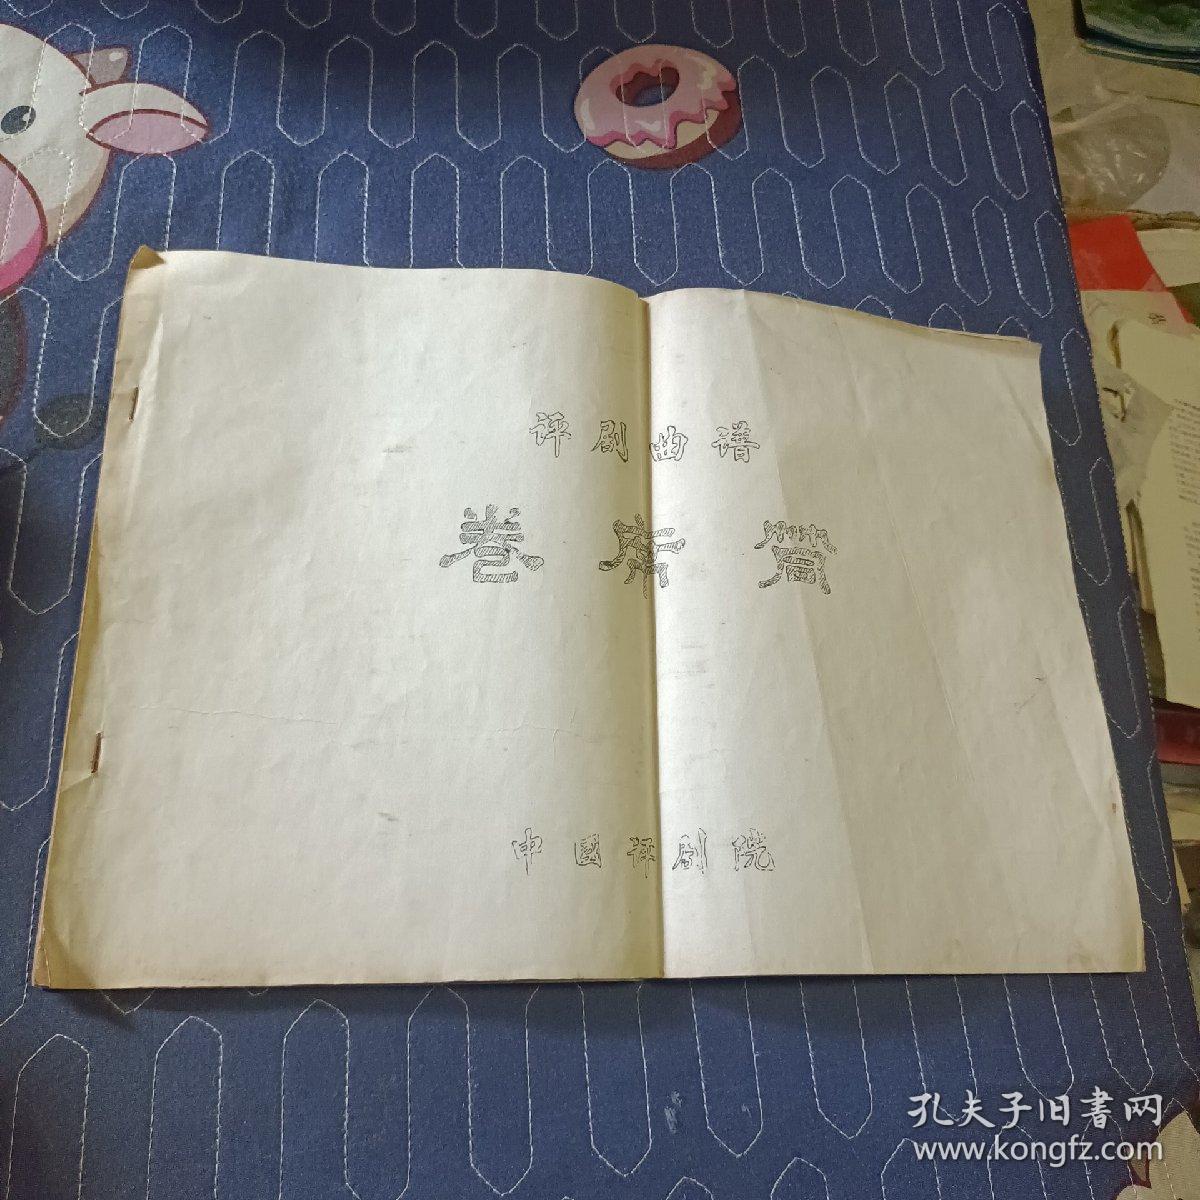 评剧曲谱
卷席筒
中國评剧院
孔夫子旧書网
www.kongfz.com